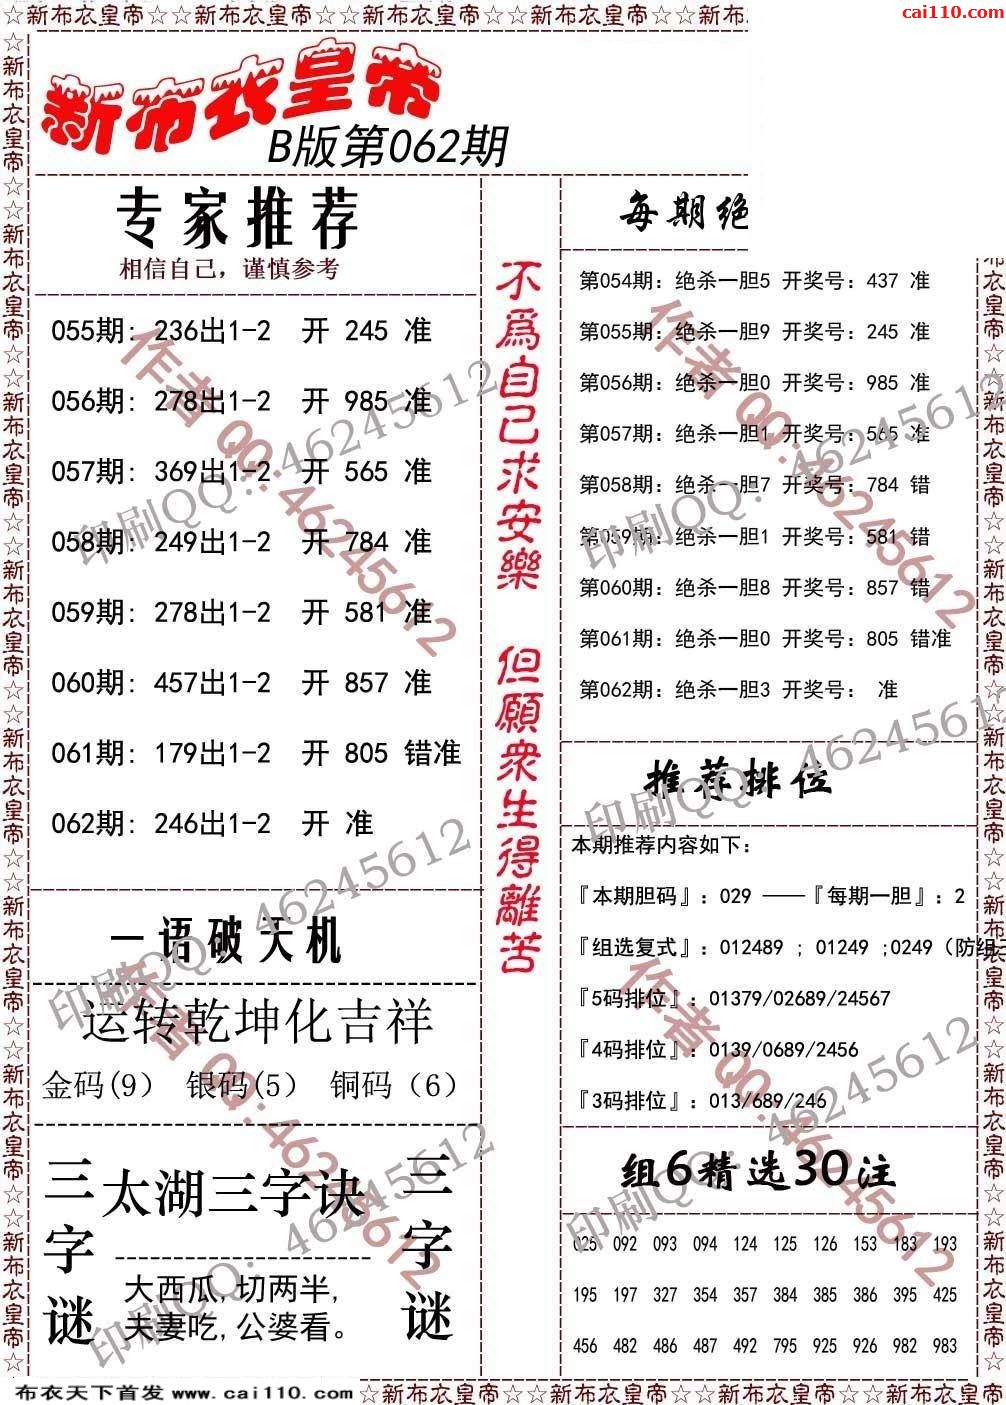 ☆新布衣皇帝☆☆新布衣皇帝☆☆新布衣皇帝☆☆新布衣皇帝☆☆新布
cai110.com
新布衣皇帝
B版第062期
专家推荐
相信自己，谨慎参考
055期: 236出1-2 开 245 准
056期: 278出1-2 开 985 准
057期: 369出1-2 开 565 准
058期: 249出1-2 开 784 准
059期: 278出1-2 开 581 准
060期: 457出1-2 开 857 准
061期: 179出1-2 开 805 错准
062期: 246出1-2 开 准
一语破天机
运转乾坤化吉祥
金码(9） 银码(5） 铜码（6）
三字谜
太湖三字诀
大西瓜,切两半,
夫妻吃,公婆看。
三字谜
不爲自己求安樂 但願衆生得離苦
每期绝
第054期: 绝杀一胆5 开奖号: 437 准
第055期: 绝杀一胆9 开奖号: 245 准
第056期: 绝杀一胆0 开奖号: 985 准
第057期: 绝杀一胆1 开奖号: 565 准
第058期: 绝杀一胆7 开奖号: 784 错
第059期: 绝杀一胆1 开奖号: 581 错
第060期: 绝杀一胆8 开奖号: 857 错
第061期: 绝杀一胆0 开奖号: 805 错准
第062期: 绝杀一胆3 开奖号: 准
推荐排位
本期推荐内容如下:
『本期胆码』: 029 ——『每期一胆』: 2
『组选复式』: 012489 ; 01249 ;0249（防组三
『5码排位』: 01379/02689/24567
『4码排位』: 0139/0689/2456
『3码排位』: 013/689/246
组6精选30注
025 092 093 094 124 125 126 153 183 193
195 197 327 354 357 384 385 386 395 425
456 482 486 487 492 795 925 926 982 983
作者 QQ:46245612
印刷QQ: 46245612
作者 QQ:46245612
印刷QQ: 46245612
印刷QQ: 46245612
作者 QQ:46245612
印刷QQ: 46245612
作者 QQ:46245612
印刷QQ: 46245612
印刷QQ: 46245612
布衣天下首发 www.cai110.com ☆新布衣皇帝☆☆新布衣皇帝☆☆新布衣皇帝☆☆新布衣皇帝☆